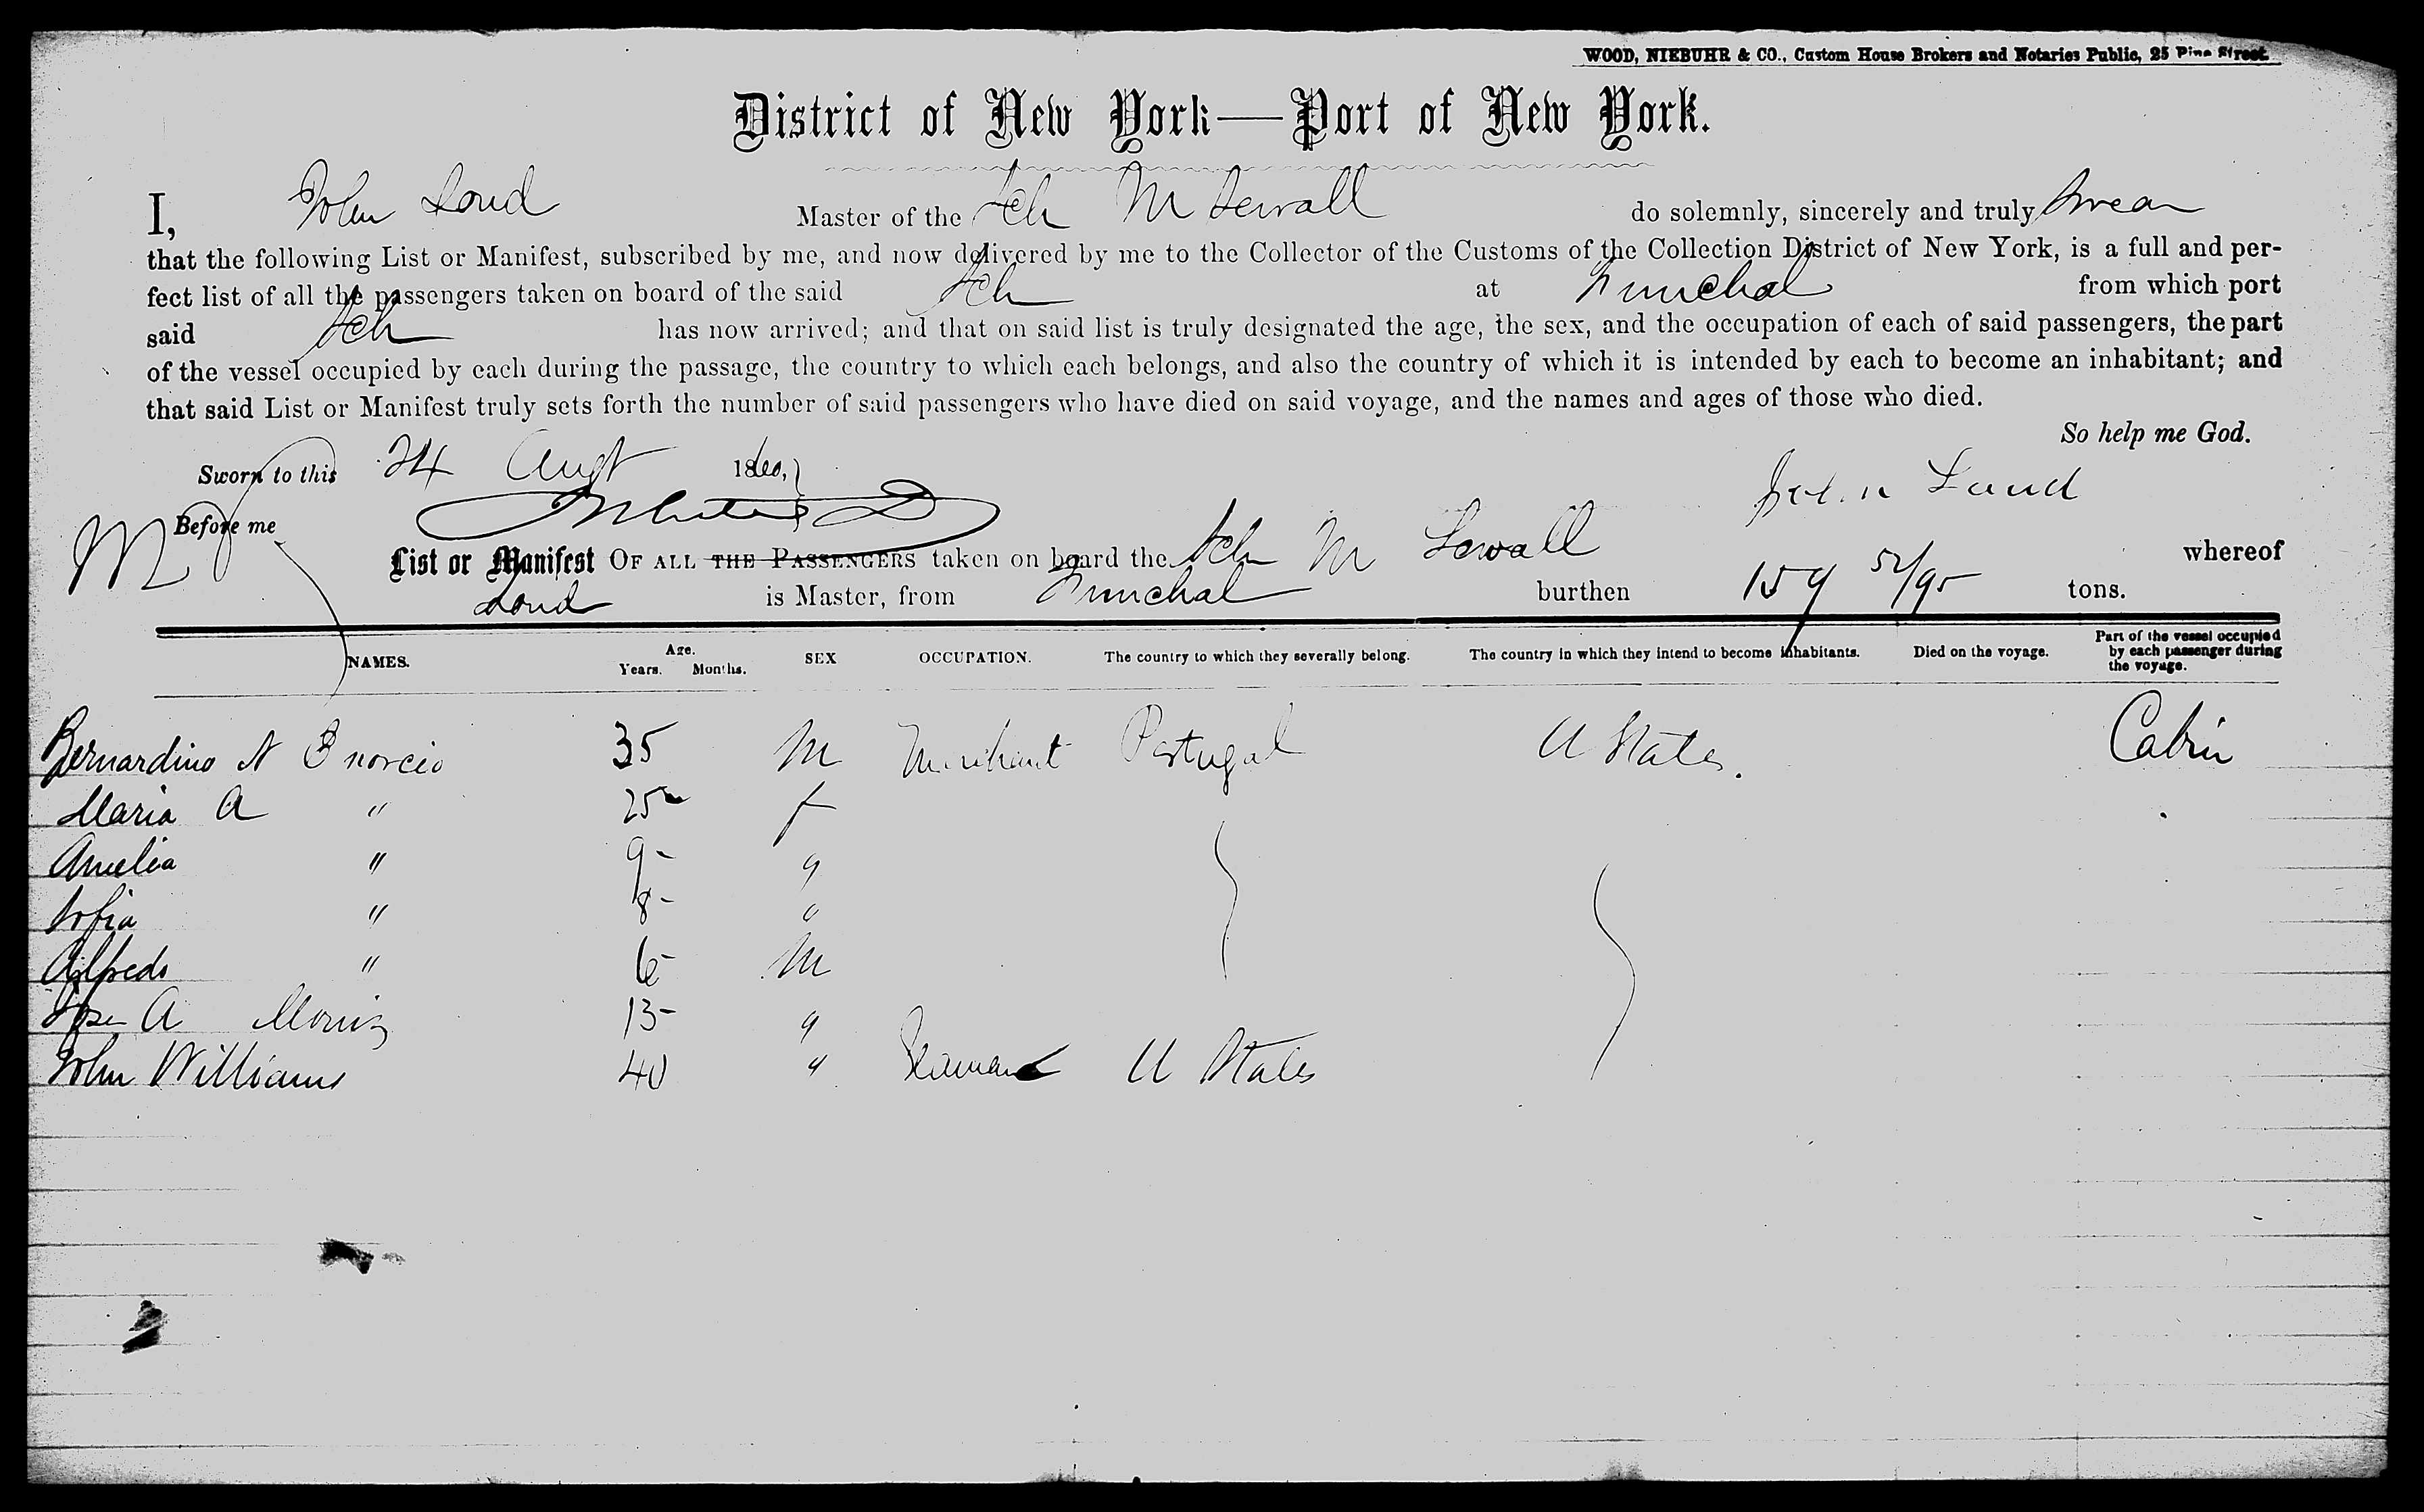 WOOD, NIEBUHR & CO., Custom House Brokers and Notaries Public, 25 Pine Street.
District of New York—Port of New York.
I, John Loud Master of the Sch M Sewall do solemnly, sincerely and truly swear
that the following List or Manifest, subscribed by me, and now delivered by me to the Collector of the Customs of the Collection District of New York, is a full and per-
fect list of all the passengers taken on board of the said Sch at Funchal from which port
said Sch has now arrived; and that on said list is truly designated the age, the sex, and the occupation of each of said passengers, the part
of the vessel occupied by each during the passage, the country to which each belongs, and also the country of which it is intended by each to become an inhabitant; and
that said List or Manifest truly sets forth the number of said passengers who have died on said voyage, and the names and ages of those who died.
So help me God.
Sworn to this 24 Augt 1860,
John Loud
Before me
List or Manifest OF ALL THE PASSENGERS taken on board the Sch M Sewall whereof
Loud is Master, from Funchal burthen 159 52/95 tons.
NAMES. Age. Years. Months. SEX OCCUPATION. The country to which they severally belong. The country in which they intend to become inhabitants. Died on the voyage. Part of the vessel occupied by each passenger during the voyage.
Bernardino N 35 M Merchant Portugal U States. Cabin
Maria A " 25 f
Amelia " 9 "
Sofia " 8 "
Alfredo " 6 M
Jose A Moniz 13 "
John Williams 40 " Seaman U States